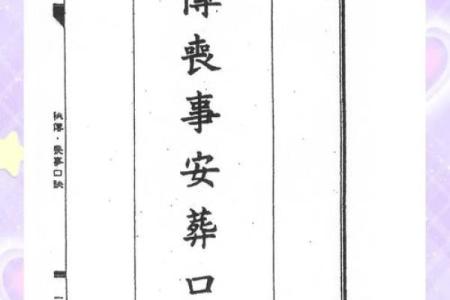 傳喪事安葬口
秘傳·喪事口訣